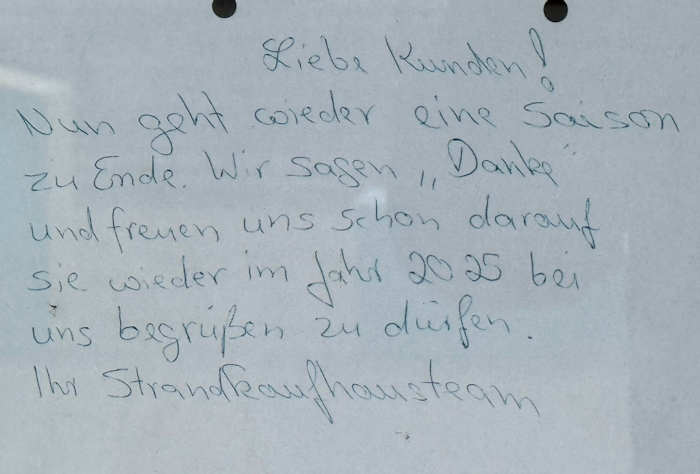 Liebe Kunden!
Nun geht wieder eine Saison
zu Ende. Wir sagen „Danke“
und freuen uns schon darauf
sie wieder im Jahr 2025 bei
uns begrüßen zu dürfen.
Ihr Strandkaufhausteam